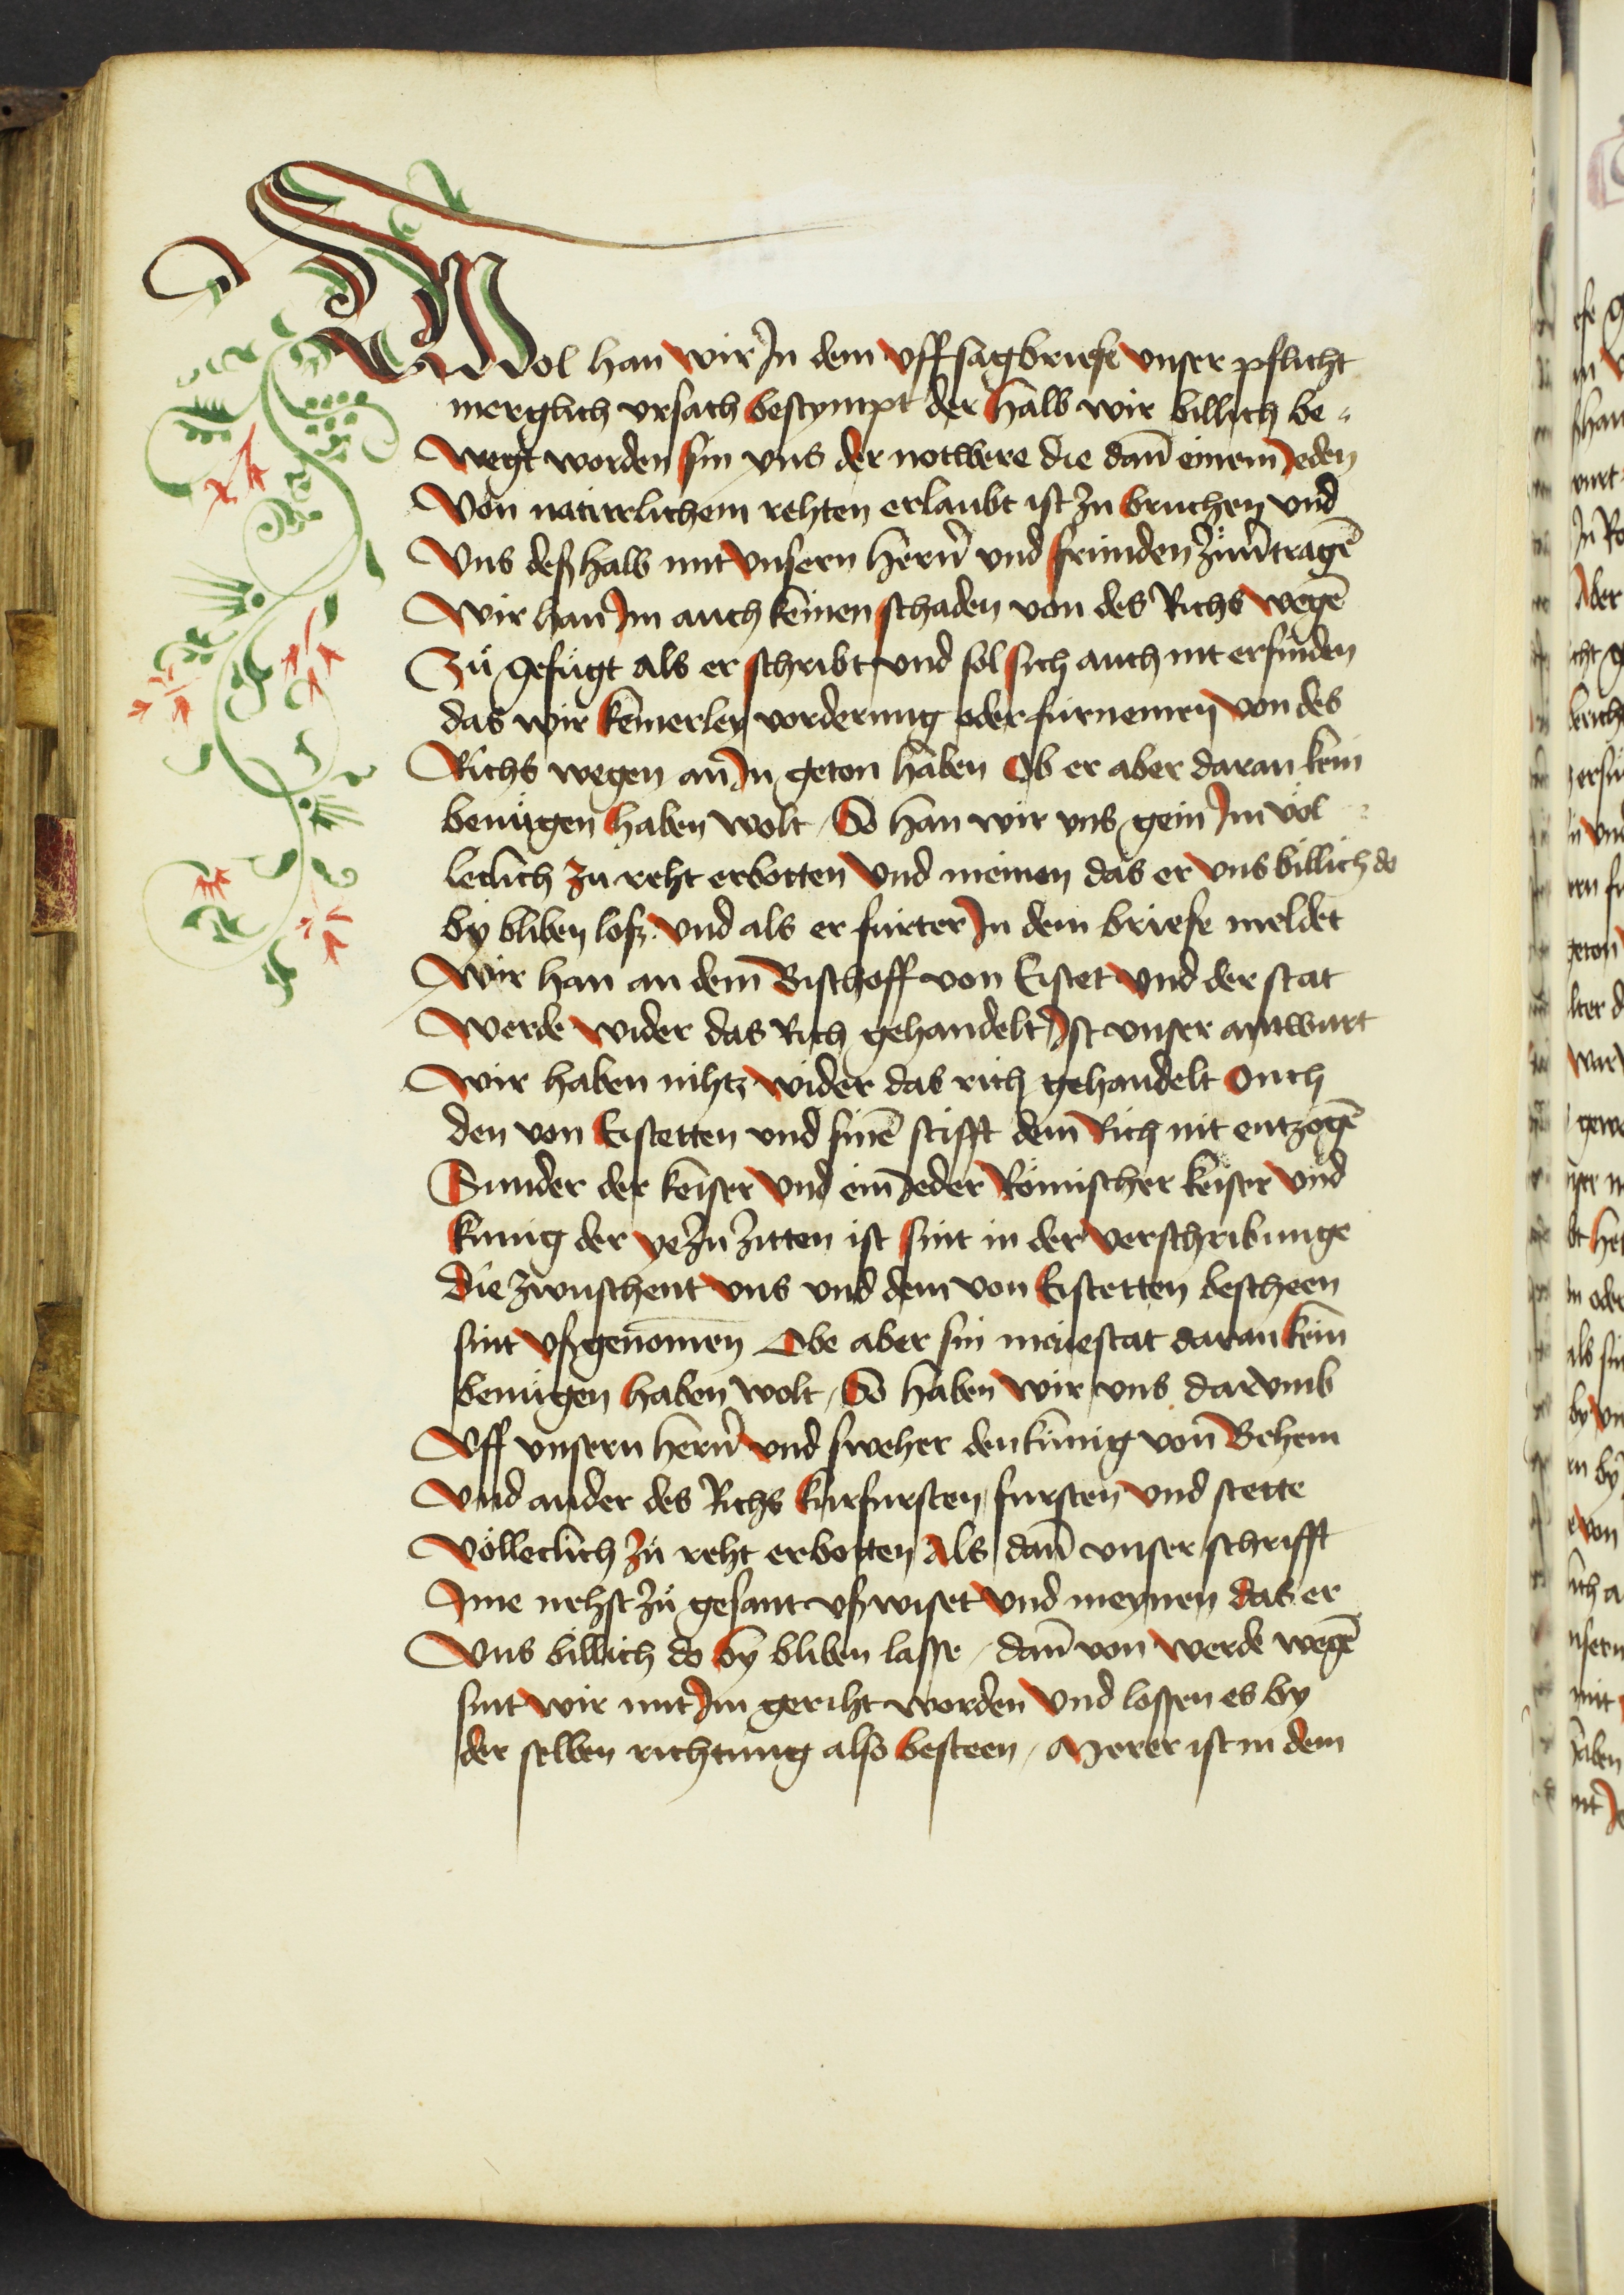 Wol han wir Jn dem vffsagbriefe vnser pflicht
merglich vrsach bestympt der halb wir billich be-
wegt worden sin vns der notwere die dan̄ einem Jeden
von natúrlichem rehten erlaubt ist zu bruchen vnd
vns deßhalb mit vnsern hern̄ vnd frúnden
Wir han Jm auch keinen schaden von des Richs wegē
Zů gefúgt als er schribt vnd sol sich auch nit erfinden
das wir keinerley vorderung oder fúrnemen von des
Richs wegen an Jn geton haben Ob er aber daran kein
benúgen haben wolt / So han wir vns gein Jm vol-
leclich zu reht erbotten vnd meinen das er vns billich do
by bliben loß. vnd als er fúrter Jn dem briefe meldet
Wir han an dem Bischoff von Eistet vnd der stat
Werde wider das Rich gehandelt Jst vnser antwurt
Wir haben nihtz wider das rich gehandelt Ouch
den von Eistetten vnd sinē stifft dem Rich nit entzogē
Sunder der keiser vnd ein Jeder Römischer keiser vnd
kunig der ye zu zitten ist sint in der verschribunge
die zwuschent vns vnd dem von Eistetten bescheen
sint vßgenomen Obe aber sin maiestat daran kein
benúgen haben wolt / So haben wir vns darvmb
Vff vnsern hern̄ vnd sweher den kúnig von Behem
vnd ander des Richs kurfursten fursten vnd stette
völleclich zů reht erbotten als dan̄ vnser schrifft
Jme nehst zů gesant vßwiset vnd meynen das er
Vns billich do by bliben lasse / dan̄ von werde wegē
sint wir mit Jm geriht worden vnd lossen es by
der selben richtung also besteen / Merer ist in dem